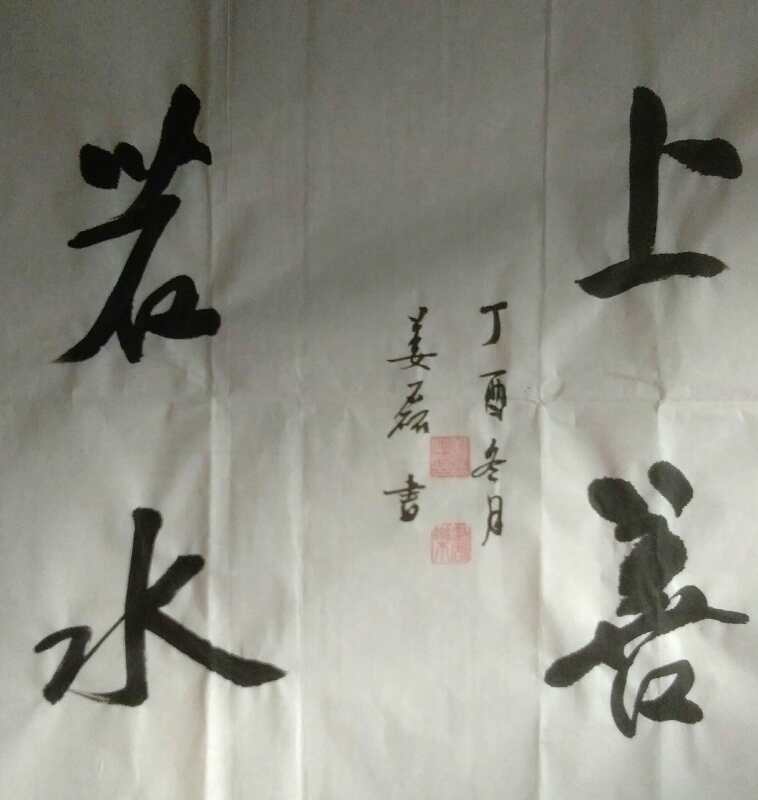 上善
若水
丁酉冬月
姜磊书